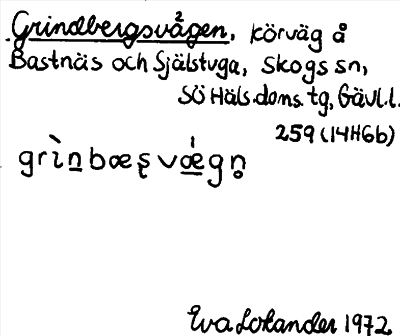 Grindbergsvägen, körväg å
Bastnäs och Själstuga, Skogs sn,
Sö Häls. doms. tg, Gävl. l.
259 (14H6b)
grìn̲bæʂvǽ̲gn̥
Eva Lolander 1972